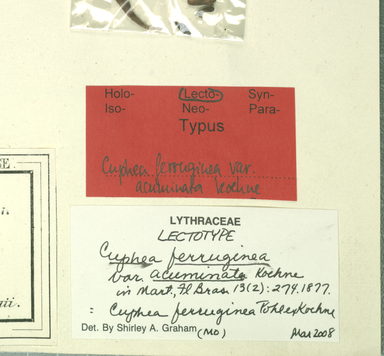 Holo- Lecto- Syn-
Iso- Neo- Para-
Typus
Cuphea ferruginea var.
acuminata Koehne
NE.
i.
gii.
LYTHRACEAE
LECTOTYPE
Cuphea ferruginea
var. acuminata Koehne
in Mart., Fl. Bras. 13(2): 274. 1877.
= Cuphea ferruginea Pohl ex Koehne
Det. By Shirley A. Graham (MO) Mar 2008